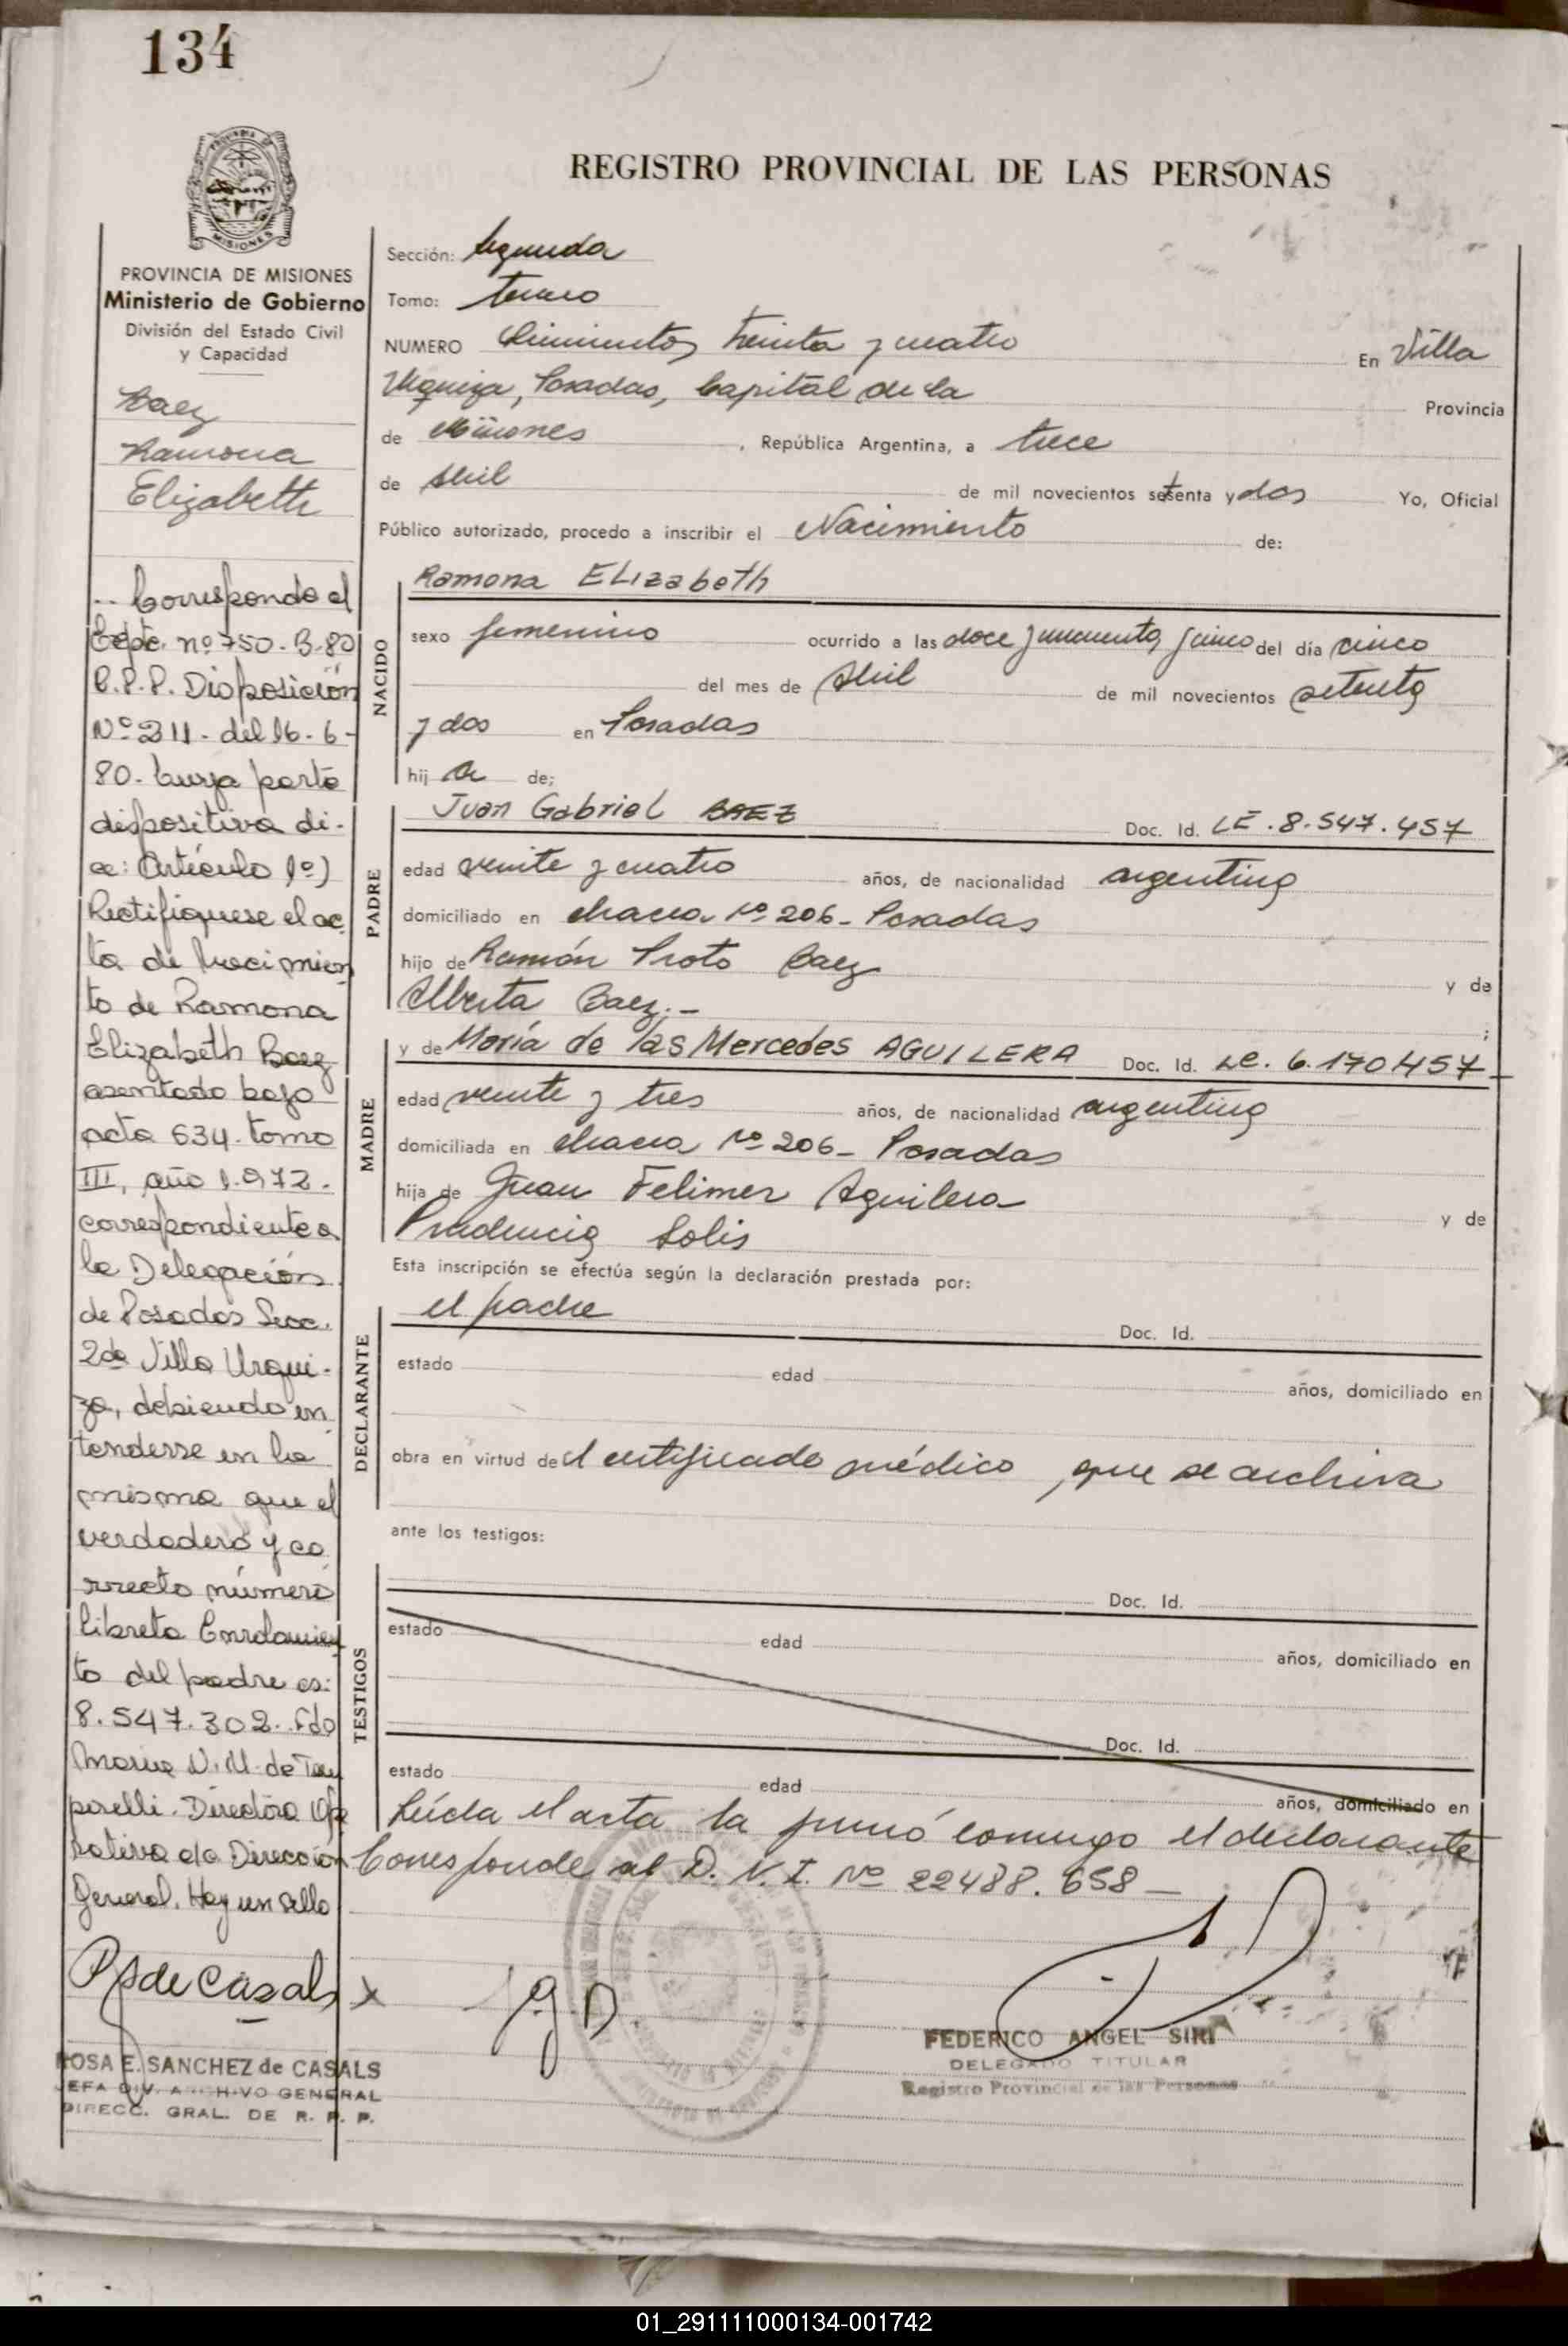 134
REGISTRO PROVINCIAL DE LAS PERSONAS
PROVINCIA DE MISIONES
MISIONES
PROVINCIA DE MISIONES
Ministerio de Gobierno
División del Estado Civil
y Capacidad
Baez
Ramona
Elizabeth
-- Corresponde al
Expte. nº 750-B-80
R.P.P. Disposición
Nº 211- del 16-6-
80- Cuya parte
dispositiva di-
ce: Artículo 1º)
Rectifíquese el ac-
ta de nacimien
to de Ramona
Elizabeth Baez
asentado bajo
acta 534- tomo
III, año 1.972-
correspondiente a
la Delegación
de Posadas Secc.
2da Villa Urqui-
za, debiendo en
tenderse en la
misma que el
verdadero y co
rrecto número
libreta Enrolamien
to del padre es:
8.547.302. Fdo
Maria N. M. de
Directora
Dirección
General. Hay un sello
R S de Casals
ROSA E. SANCHEZ de CASALS
JEFA DIV. ARCHIVO GENERAL
DIRECC. GRAL. DE R. P. P.
Sección: Segunda
Tomo: tercero
NUMERO Quinientos treinta y cuatro En Villa
Urquiza, Posadas, Capital de la Provincia
de Misiones, República Argentina, a trece
de Abril de mil novecientos setenta y dos Yo, Oficial
Público autorizado, procedo a inscribir el Nacimiento de:
NACIDO
Ramona ELizabeth
sexo femenino ocurrido a las doce y cincuenta y cinco del día cinco
del mes de Abril de mil novecientos setenta
y dos en Posadas
hij a de;
PADRE
Juan Gabriel BAEZ Doc. Id. LE.8.547.457
edad veinte y cuatro años, de nacionalidad argentina
domiciliado en chacra Nº 206- Posadas
hijo de Ramón Proto Baez y de
Alberta Baez.- ;
MADRE
y de María de las Mercedes AGUILERA Doc. Id. LC. 6.170.457-
edad veinte y tres años, de nacionalidad argentina
domiciliada en chacra Nº 206- Posadas
hija de Juan Felimer Aguilera y de
Prudencia Solis
Esta inscripción se efectúa según la declaración prestada por:
DECLARANTE
el padre Doc. Id.
estado edad años, domiciliado en
obra en virtud del certificado médico, que se archiva
ante los testigos:
TESTIGOS
Doc. Id.
estado edad años, domiciliado en
Doc. Id.
estado edad años, domiciliado en
Leída el acta la firmó conmigo el declarante
Corresponde al D. N. I. Nº 22488.658-
FEDERICO ANGEL SIRI
DELEGADO TITULAR
Registro Provincial de las Personas
01_291111000134-001742